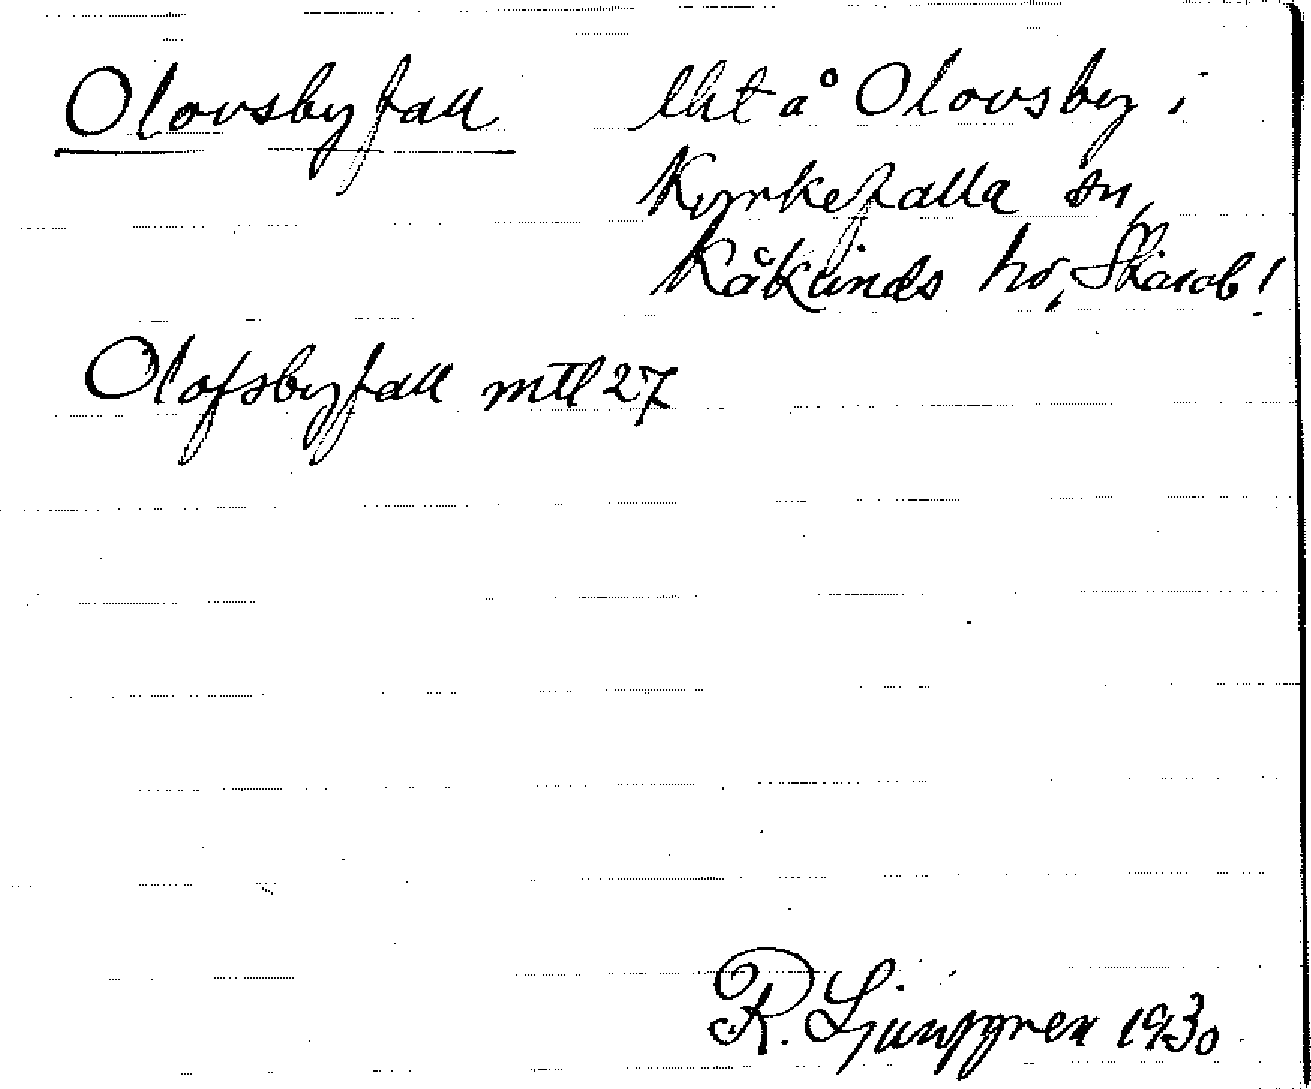 Olovsbyfall lht å Olovsby i
Kyrkefalla sn,
Kåkinds hd, Skarab!
Olofsbyfall mtl 27
R. Ljunggren 1930